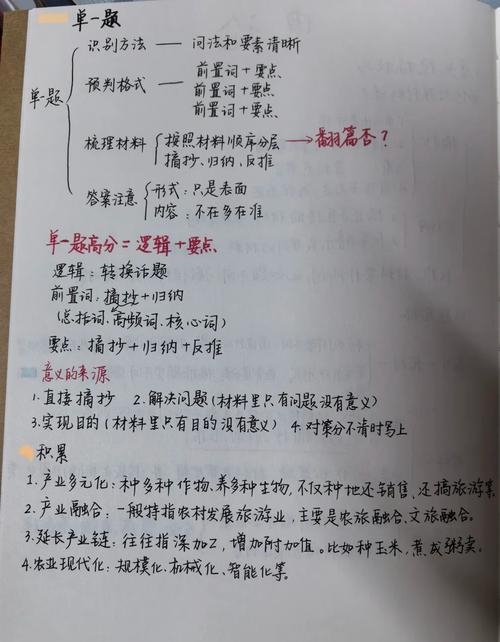 单一题
单一题
识别方法 — 问法和要素清晰
预判格式 — 前置词+要点
前置词+要点
前置词+要点
梳理材料 按照材料顺序分层 → 翻篇否?
摘抄、归纳、反推
答案注意 形式:只是表面
内容:不在多在准
单一题高分=逻辑+要点
逻辑:转换话题
前置词:摘抄+归纳
(总括词、高频词、核心词)
要点:摘抄+归纳+反推
意义的来源
1.直接摘抄 2.解决问题(材料里只有问题没有意义)
3.实现目的(材料里只有目的没有意义) 4.对策分不清时写上
积累
1.产业多元化:种多种作物、养多种生物,不仅种地还销售、还搞旅游業
2.产业融合:一般特指农村发展旅游业,主要是农旅融合、文旅融合。
3.延长产业链:往往指深加工,增加附加值。比如种玉米,煮成粥卖。
4.农业现代化:规模化、机械化、智能化等。